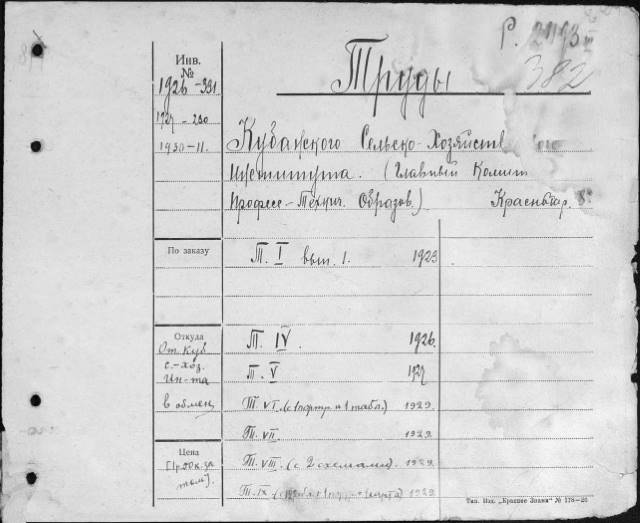 Р. 2493
382
Инв.
№
1926-331
1927-230
1930-11.
Труды
Кубанского Сельско-Хозяйств ого
Института. (Главный Комит
Професс.-Технич. Образов.) Краснодар. 8°
По заказу
Т. I вып. 1. 1923
Откуда
От Куб
с.-хоз.
Ин-та
в обмен
Т. IV 1926.
Т. V 1927
Т. VI. (с 1 портр. и 1 табл.) 1929.
Т. VII. 1929.
Цена
Т. VIII. (с 2 схемами). 1929.
Т. IX 1929
Тип. Изд. „Красное Знамя" № 178-26